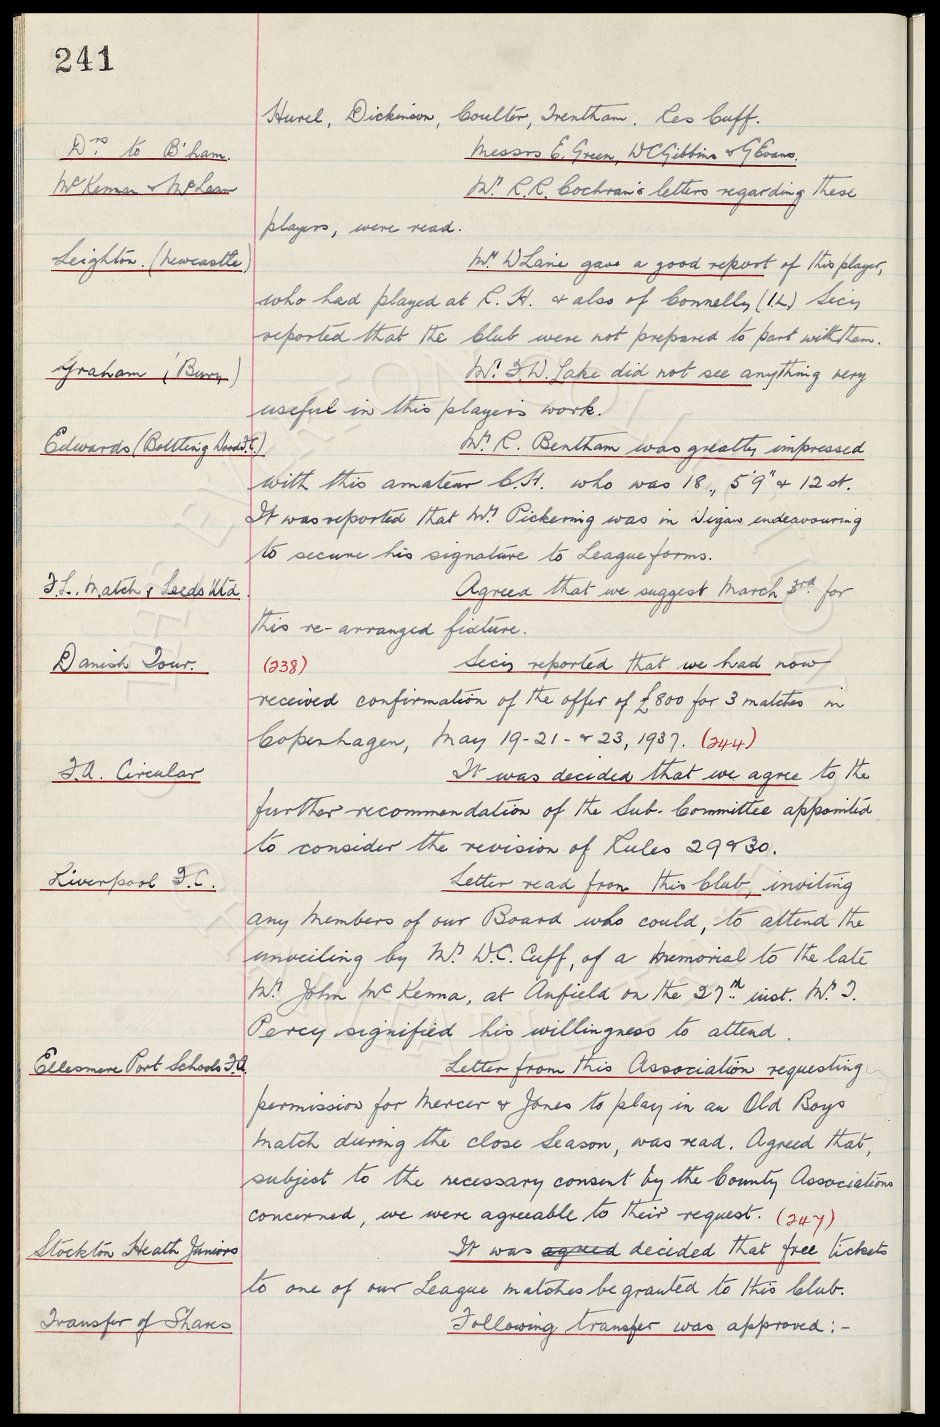 241
Hurel, Dickinson, Coulter, Trentham. Res Cuff.
Drs to B'ham. Messrs E. Green, W C Gibbins & G Evans.
McKennan & McLean Mr. R. R. Cochran's letters regarding these
players, were read.
Leighton. (Newcastle) Mr. W Lane gave a good report of this player,
who had played at R. H. & also of Connelly (I.L.) Secy
reported that the Club were not prepared to part with them.
Graham (Bury) Mr. F. W. Lake did not see anything very
useful in this player's work.
Edwards (Botttling Woods F.C.) Mr. R. Bentham was greatly impressed
with this amateur C.H. who was 18, 5'9" & 12 st.
It was reported that Mr. Pickering was in Wigan endeavouring
to secure his signature to League forms.
F.L. Match, Leeds Utd. Agreed that we suggest March 3rd. for
this re-arranged fixture.
Danish Tour. (238) Secy reported that we had now
received confirmation of the offer of £800 for 3 matches in
Copenhagen, May 19-21-& 23, 1937. (244)
F.A. Circular It was decided that we agree to the
further recommendation of the Sub-Committee appointed
to consider the revision of Rules 29 & 30.
Liverpool F.C. Letter read from this Club, inviting
any Members of our Board who could, to attend the
unveiling by Mr. W.C. Cuff, of a memorial to the late
Mr. John McKenna, at Anfield on the 27th. inst. Mr. T.
Percy signified his willingness to attend.
Ellesmere Port Schools F.A. Letter from this Association requesting
permission for Mercer & Jones to play in an Old Boys
Match during the close Season, was read. Agreed that,
subject to the necessary consent by the County Associations
concerned, we were agreeable to their request. (247)
Stockton Heath Juniors It was agreed decided that free tickets
to one of our League matches be granted to this Club.
Transfer of Shares Following transfer was approved:-